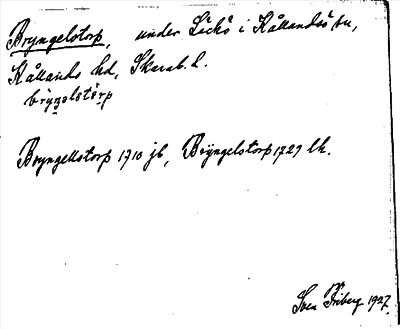 Bryngelstorp, under Läckö i Kållandsö sn,
Kållands hd, Skarab. l.
bryŋelstorp
Bryngellstorp 1710 jb, Bryngelstorp 1729 lk.
Sven Friberg 1927.